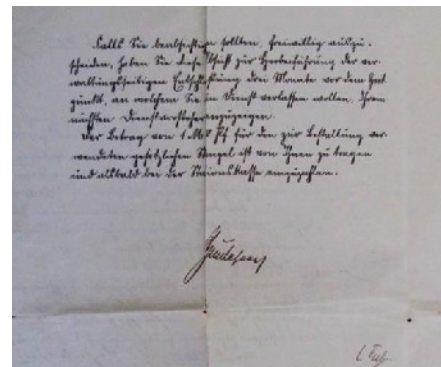 Falls Sie beabsichtigen sollten, freiwillig auszu-
scheiden, haben Sie diese Absicht zur Herbeiführung der ver-
waltungsseitigen Entschließung drei Monate vor dem Zeit-
punkt, an welchem Sie den Dienst verlassen wollen, Ihrem
nächsten Dienstvorsteher anzuzeigen.
Der Betrag von 1 Mk Pf für den zur Bestallung ver-
wendeten gesetzlichen Stempel ist von Ihnen zu tragen
und alsbald bei der Stationskasse einzuzahlen.